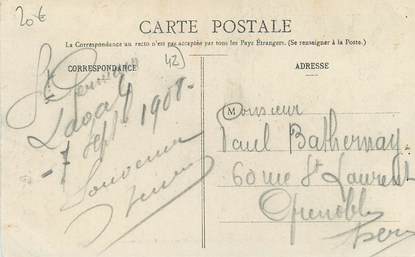 20€
CARTE POSTALE
La Correspondance au recto n'est pas acceptée par tous les Pays Étrangers. (Se renseigner à la Poste.)
CORRESPONDANCE
42
ADRESSE
St Germain
Laval
7 Sept 1908
Souvenir
Monsieur
Paul Bathernay
60 rue St Laurent
Grenoble
Isère